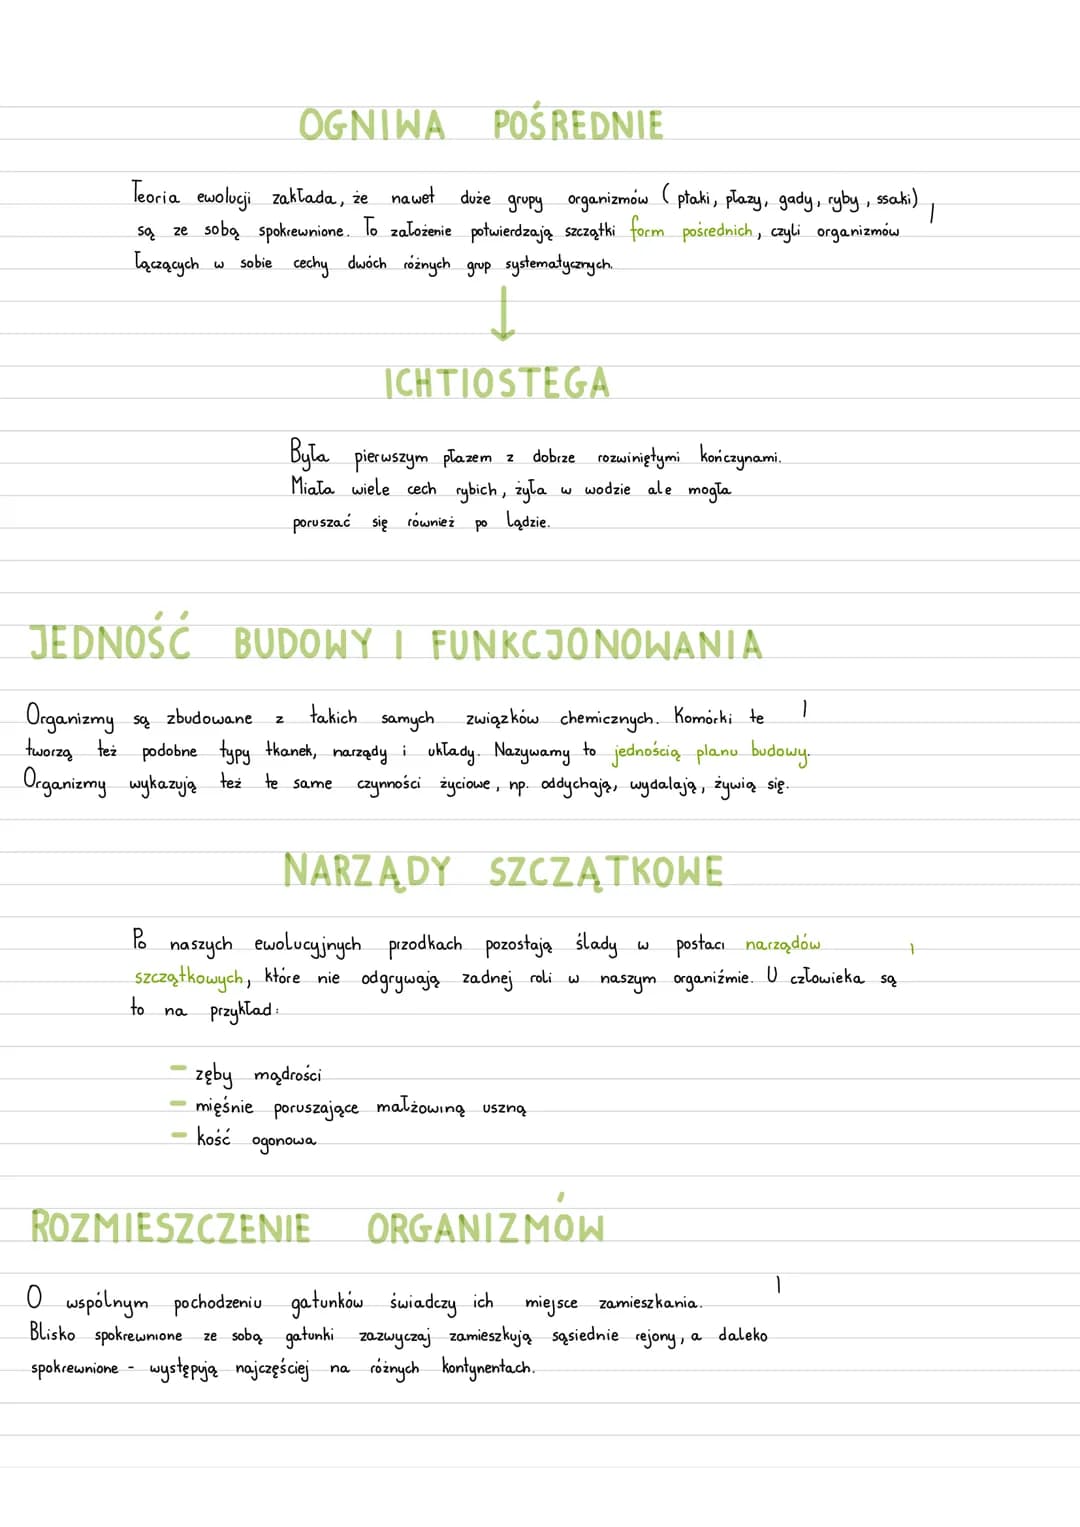 OGNIWA POŚREDNIE
Teoria ewolucji zakłada, że nawet duże grupy organizmów (ptaki, płazy, gady, ryby, ssaki)
są ze sobą spokrewnione. To założenie potwierdzają szczątki form pośrednich, czyli organizmów
łączących w sobie cechy dwóch różnych grup systematycznych.
ICHTIOSTEGA
Była pierwszym płazem z dobrze rozwiniętymi kończynami.
Miała wiele cech rybich, żyła w wodzie ale mogła
poruszać się również po lądzie.
JEDNOŚĆ BUDOWY I FUNKCJONOWANIA
Organizmy są zbudowane z takich samych związków chemicznych. Komórki te
tworzą też podobne typy tkanek, narządy i układy. Nazywamy to jednością planu budowy.
Organizmy wykazują też te same czynności życiowe, np. oddychają, wydalają, żywią się.
NARZĄDY SZCZĄTKOWE
Po naszych ewolucyjnych przodkach pozostają ślady w postaci narządów
szczątkowych, które nie odgrywają zadnej roli w naszym organiźmie. U człowieka są
to na przykład:
- zęby mądrości
- mięśnie poruszające małżowiną uszną
- kość ogonowa
ROZMIESZCZENIE ORGANIZMÓW
O wspólnym pochodzeniu gatunków świadczy ich miejsce zamieszkania.
Blisko spokrewnione ze sobą gatunki zazwyczaj zamieszkują sąsiednie rejony, a daleko
spokrewnione - występują najczęściej na różnych kontynentach.